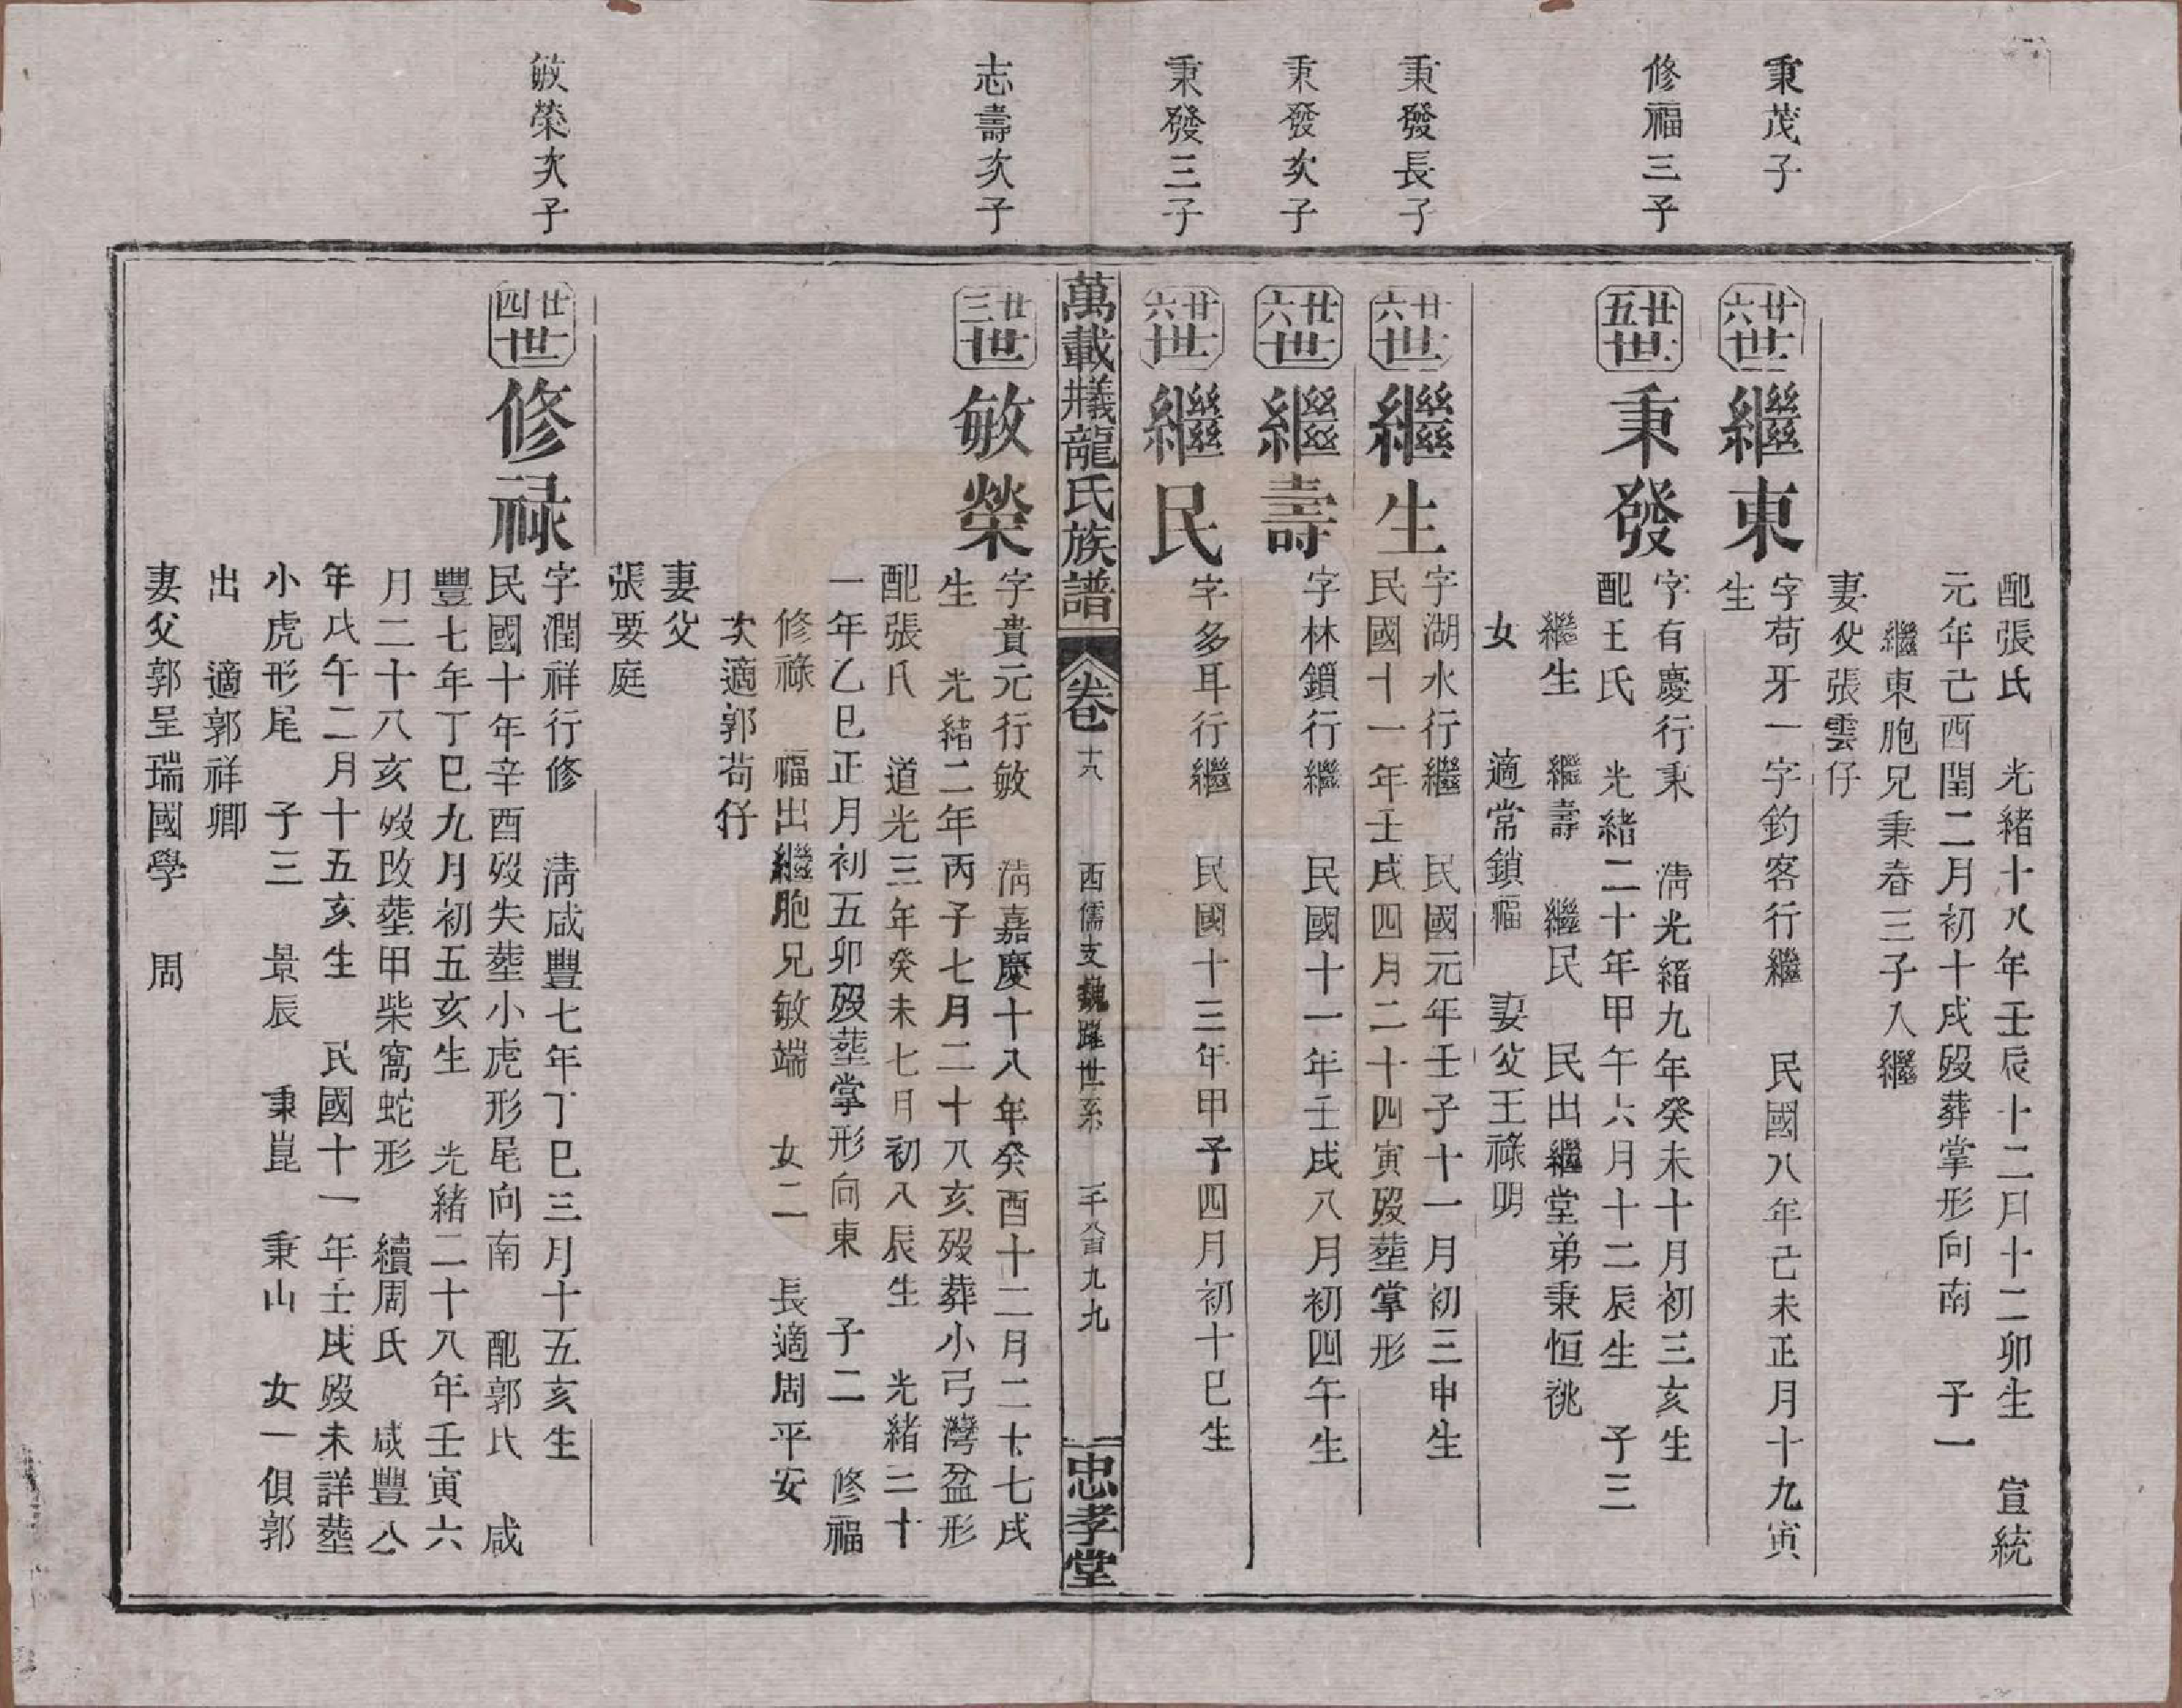 配張氏　光緒十八年壬辰十二月十二卯生　宣統
元年己酉閏二月初十戌歿葬掌形向南　子一
繼東胞兄秉春三子入繼
妻父張雲仔
秉茂子
廿六世
繼東
字苟牙一字釣客行繼　民國八年己未正月十九寅
生
修福三子
廿五世
秉發
字有慶行秉　清光緒九年癸未十月初三亥生
配王氏　光緒二十年甲午六月十二辰生　子三
繼生　繼壽　繼民　民出繼堂弟秉恒祧
女　適常鎖福　妻父王祿明
秉發長子
廿六世
繼生
字湖水行繼　民國元年壬子十一月初三申生
民國十一年壬戌四月二十四寅歿塟掌形
秉發次子
廿六世
繼壽
字林鎖行繼　民國十一年壬戌八月初四午生
秉發三子
廿六世
繼民
字多耳行繼　民國十三年甲子四月初十巳生
萬載㸢龍氏族譜　卷十八　西儒支巍躍世系　一千八百九九　忠孝堂
志壽次子
廿三世
敏榮
字貴元行敏　清嘉慶十八年癸酉十二月二十七戌
生　光緒二年丙子七月二十八亥歿葬小弓灣盆形
配張氏　道光三年癸未七月初八辰生　光緒三十
一年乙巳正月初五卯歿塟掌形向東　子二　修福
修祿　福出繼胞兄敏端　女二　長適周平安
次適郭苟仔
妻父
張要庭
敏榮次子
廿四世
修祿
字潤祥行修　清咸豐七年丁巳三月十五亥生
民國十年辛酉歿失塟小虎形尾向南　配郭氏　咸
豐七年丁巳九月初五亥生　光緒二十八年壬寅六
月二十八亥歿改塟甲柴窩蛇形　續周氏　咸豐八
年戊午二月十五亥生　民國十一年壬戌歿未詳塟
小虎形尾　子三　景辰　秉崑　秉山　女一俱郭
出　適郭祥卿
妻父郭呈瑞國學　周